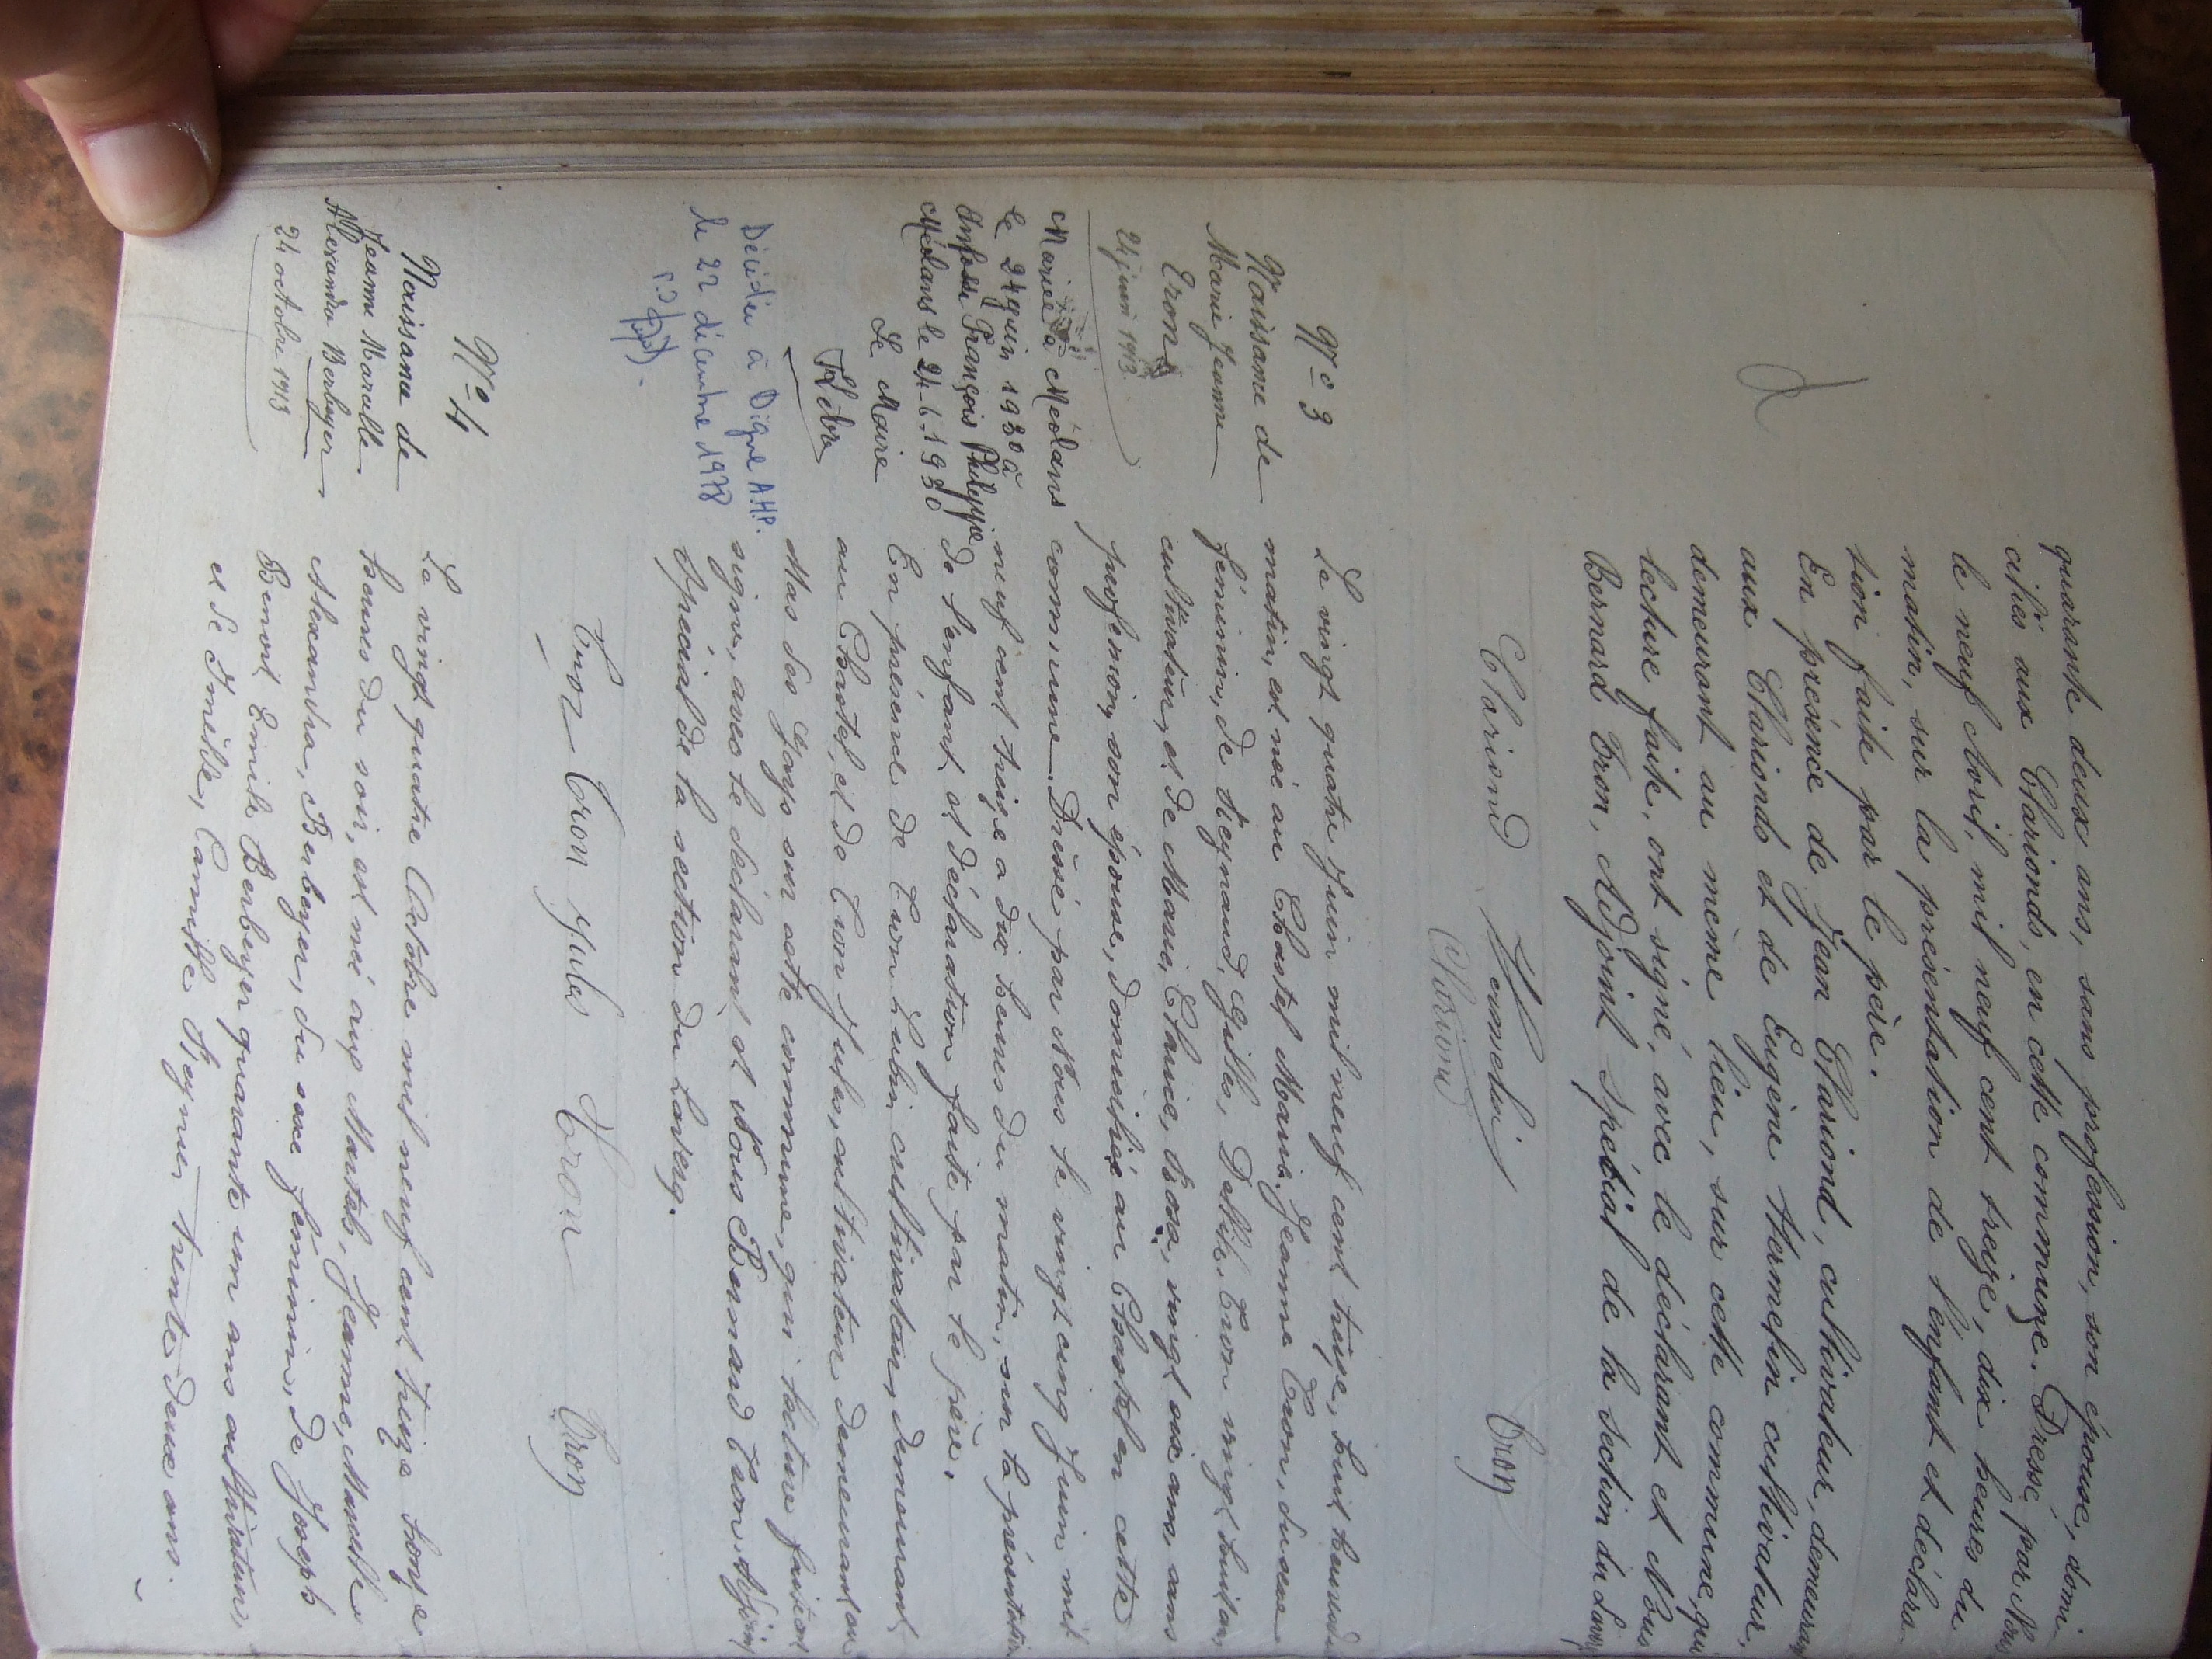 quarante deux ans, sans profession, son épouse, domi-
ciliés aux Clarionds, en cette commune. Dressé, par Nous
le neuf Avril, mil neuf cent treize, dix heures du
matin, sur la présentation de l'enfant et déclara-
tion faite par le père.
En présence de Jean Clariond, cultivateur, demeurant
aux Clarionds et de Eugène Hermelin cultivateur,
demeurant au même lieu, sur cette commune, qui
lecture faite, ont signé, avec le déclarant et Nous
Bernard Tron, Adjoint Spécial de la Section du Laverq
Clariond Hermelin Tron
Clariond
N° 3
Naissance de
Marie Jeanne
Tron
24 juin 1913.
Mariée à Méolans
le 24 juin 1930 à
François Philippe
Méolans le 24-6-1930
Le Maire
Décédée à Digne A.H.P.
le 22 décembre 1978
Le vingt quatre Juin mil neuf cent treize, huit heures du
matin, est née au Chastel Marie Jeanne Tron, du sexe
féminin, de Reynaud, Gilles, Tron vingt huit ans
cultivateur, et de Marie, Claire, vingt six ans, sans
profession, son épouse, domiciliés au Chastel en cette
commune. Dressé par Nous le vingt cinq Juin mil
neuf cent treize a dix heures du matin, sur la présentation
de l'enfant et déclaration faite par le père.
En présence de Tron Lubin cultivateur, demeurant
au Chastel, et de Tron Jules, cultivateur demeurant au
Mas sur cette commune, qui lecture faite ont
signé, avec le déclarant et Nous Bernard Tron, Adjoint
Spécial de la section du Laverq.
Tron Tron Jules Tron Tron
N° 4
Naissance de
Jeanne Marcelle
Alexandra Berbeyer
24 octobre 1913
Le vingt quatre Octobre mil neuf cent treize
heures du soir, est née aux Martels, Jeanne, Marcelle
Alexandra, Berbeyer, du sexe féminin, de Joseph
Benoit Emile Berbeyer quarante un ans cultivateur,
et de Camille trente deux ans.